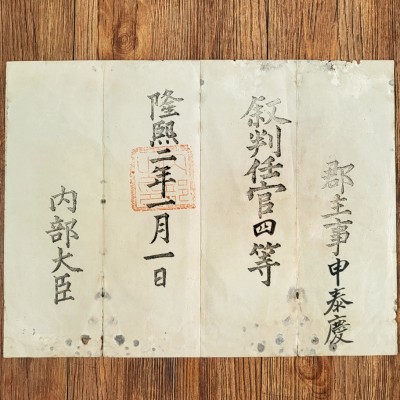 郡主事申泰慶
敍判任官四等
隆熙二年一月一日
內部大臣